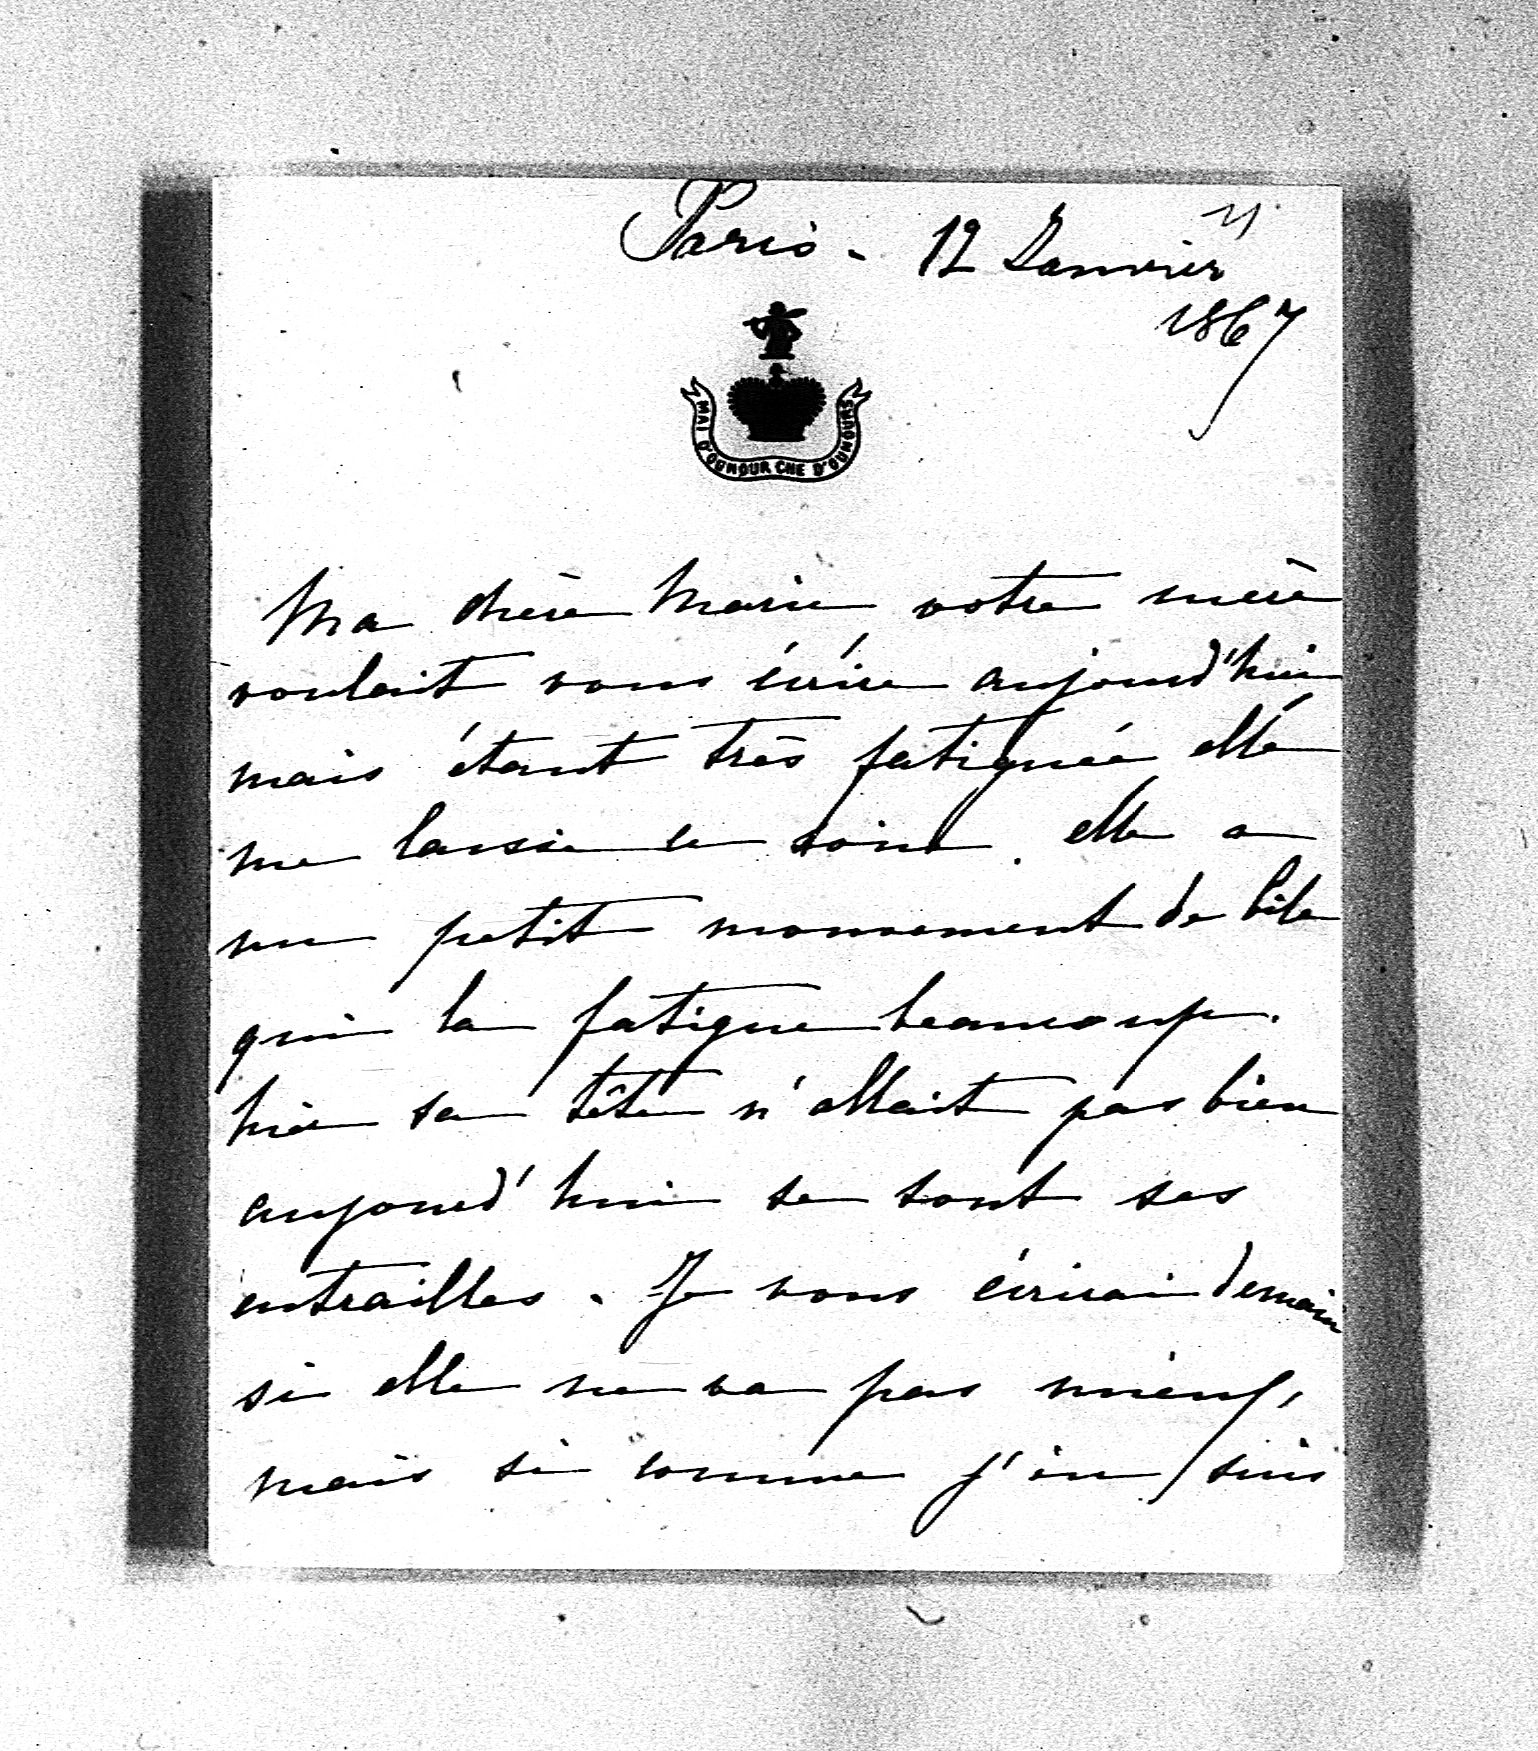 Paris - 12 Janvier
1867
MAI D'OUNOUR CHE D'OUNOURS
Ma chère Marie votre mère
voulait vous écrire aujourd'hui
mais étant très fatiguée elle
me laisse le soin. elle a
un petit mouvement de bile
qui la fatigue beaucoup.
hier sa tête n'allait pas bien
aujourd'hui se sont ses
entrailles. Je vous écrirai demain
si elle ne va pas mieux,
mais si comme j'en suis